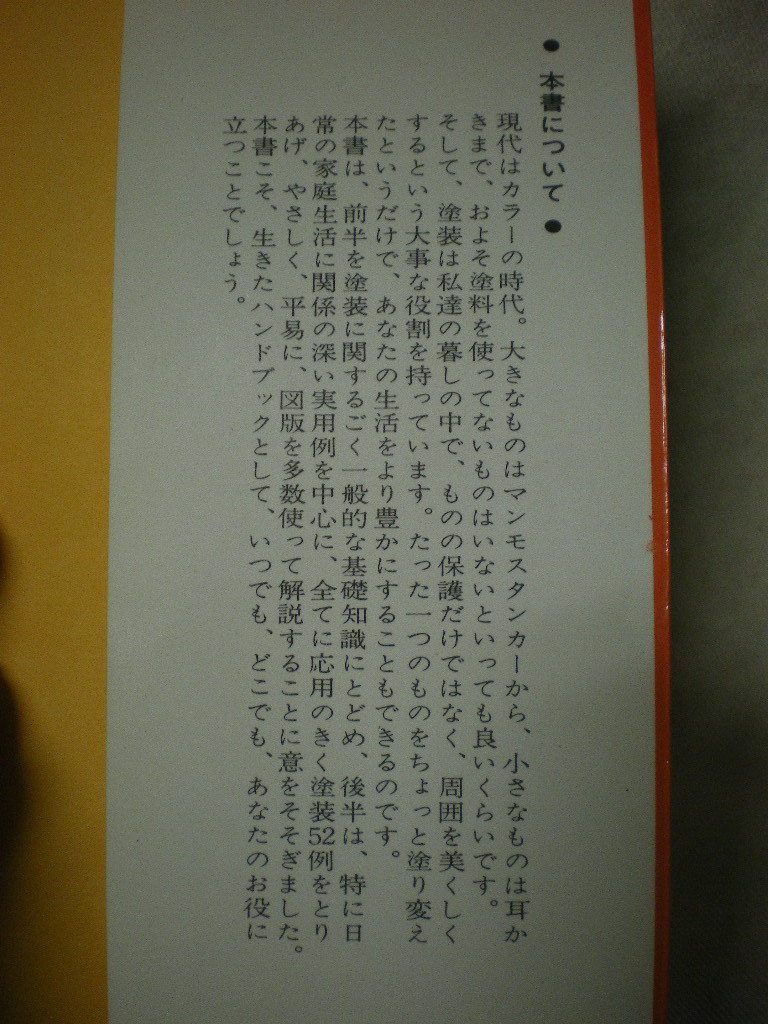 ● 本書について ●
現代はカラーの時代。大きなものはマンモスタンカーから、小さなものは耳か
きまで、およそ塗料を使ってないものはいないといっても良いくらいです。
そして、塗装は私達の暮しの中で、ものの保護だけではなく、周囲を美くしく
するという大事な役割を持っています。たった一つのものをちょっと塗り変え
たというだけで、あなたの生活をより豊かにすることもできるのです。
本書は、前半を塗装に関するごく一般的な基礎知識にとどめ、後半は、特に日
常の家庭生活に関係の深い実用例を中心に、全てに応用のきく塗装52例をとり
あげ、やさしく、平易に、図版を多数使って解説することに意をそそぎました。
本書こそ、生きたハンドブックとして、いつでも、どこでも、あなたのお役に
立つことでしょう。